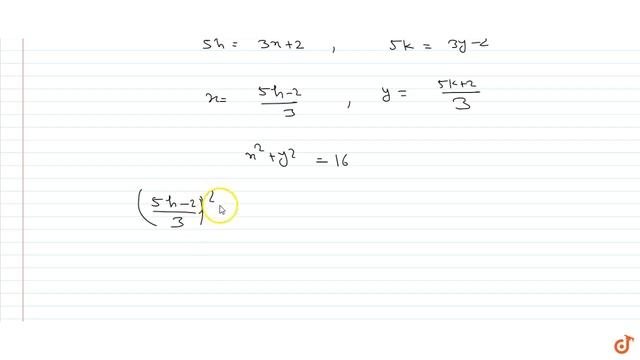 5h = 3x+2 , 5k = 3y-2
x= (5h-2)/3 , y = (5k+2)/3
x² + y² = 16
((5h-2)/3)²